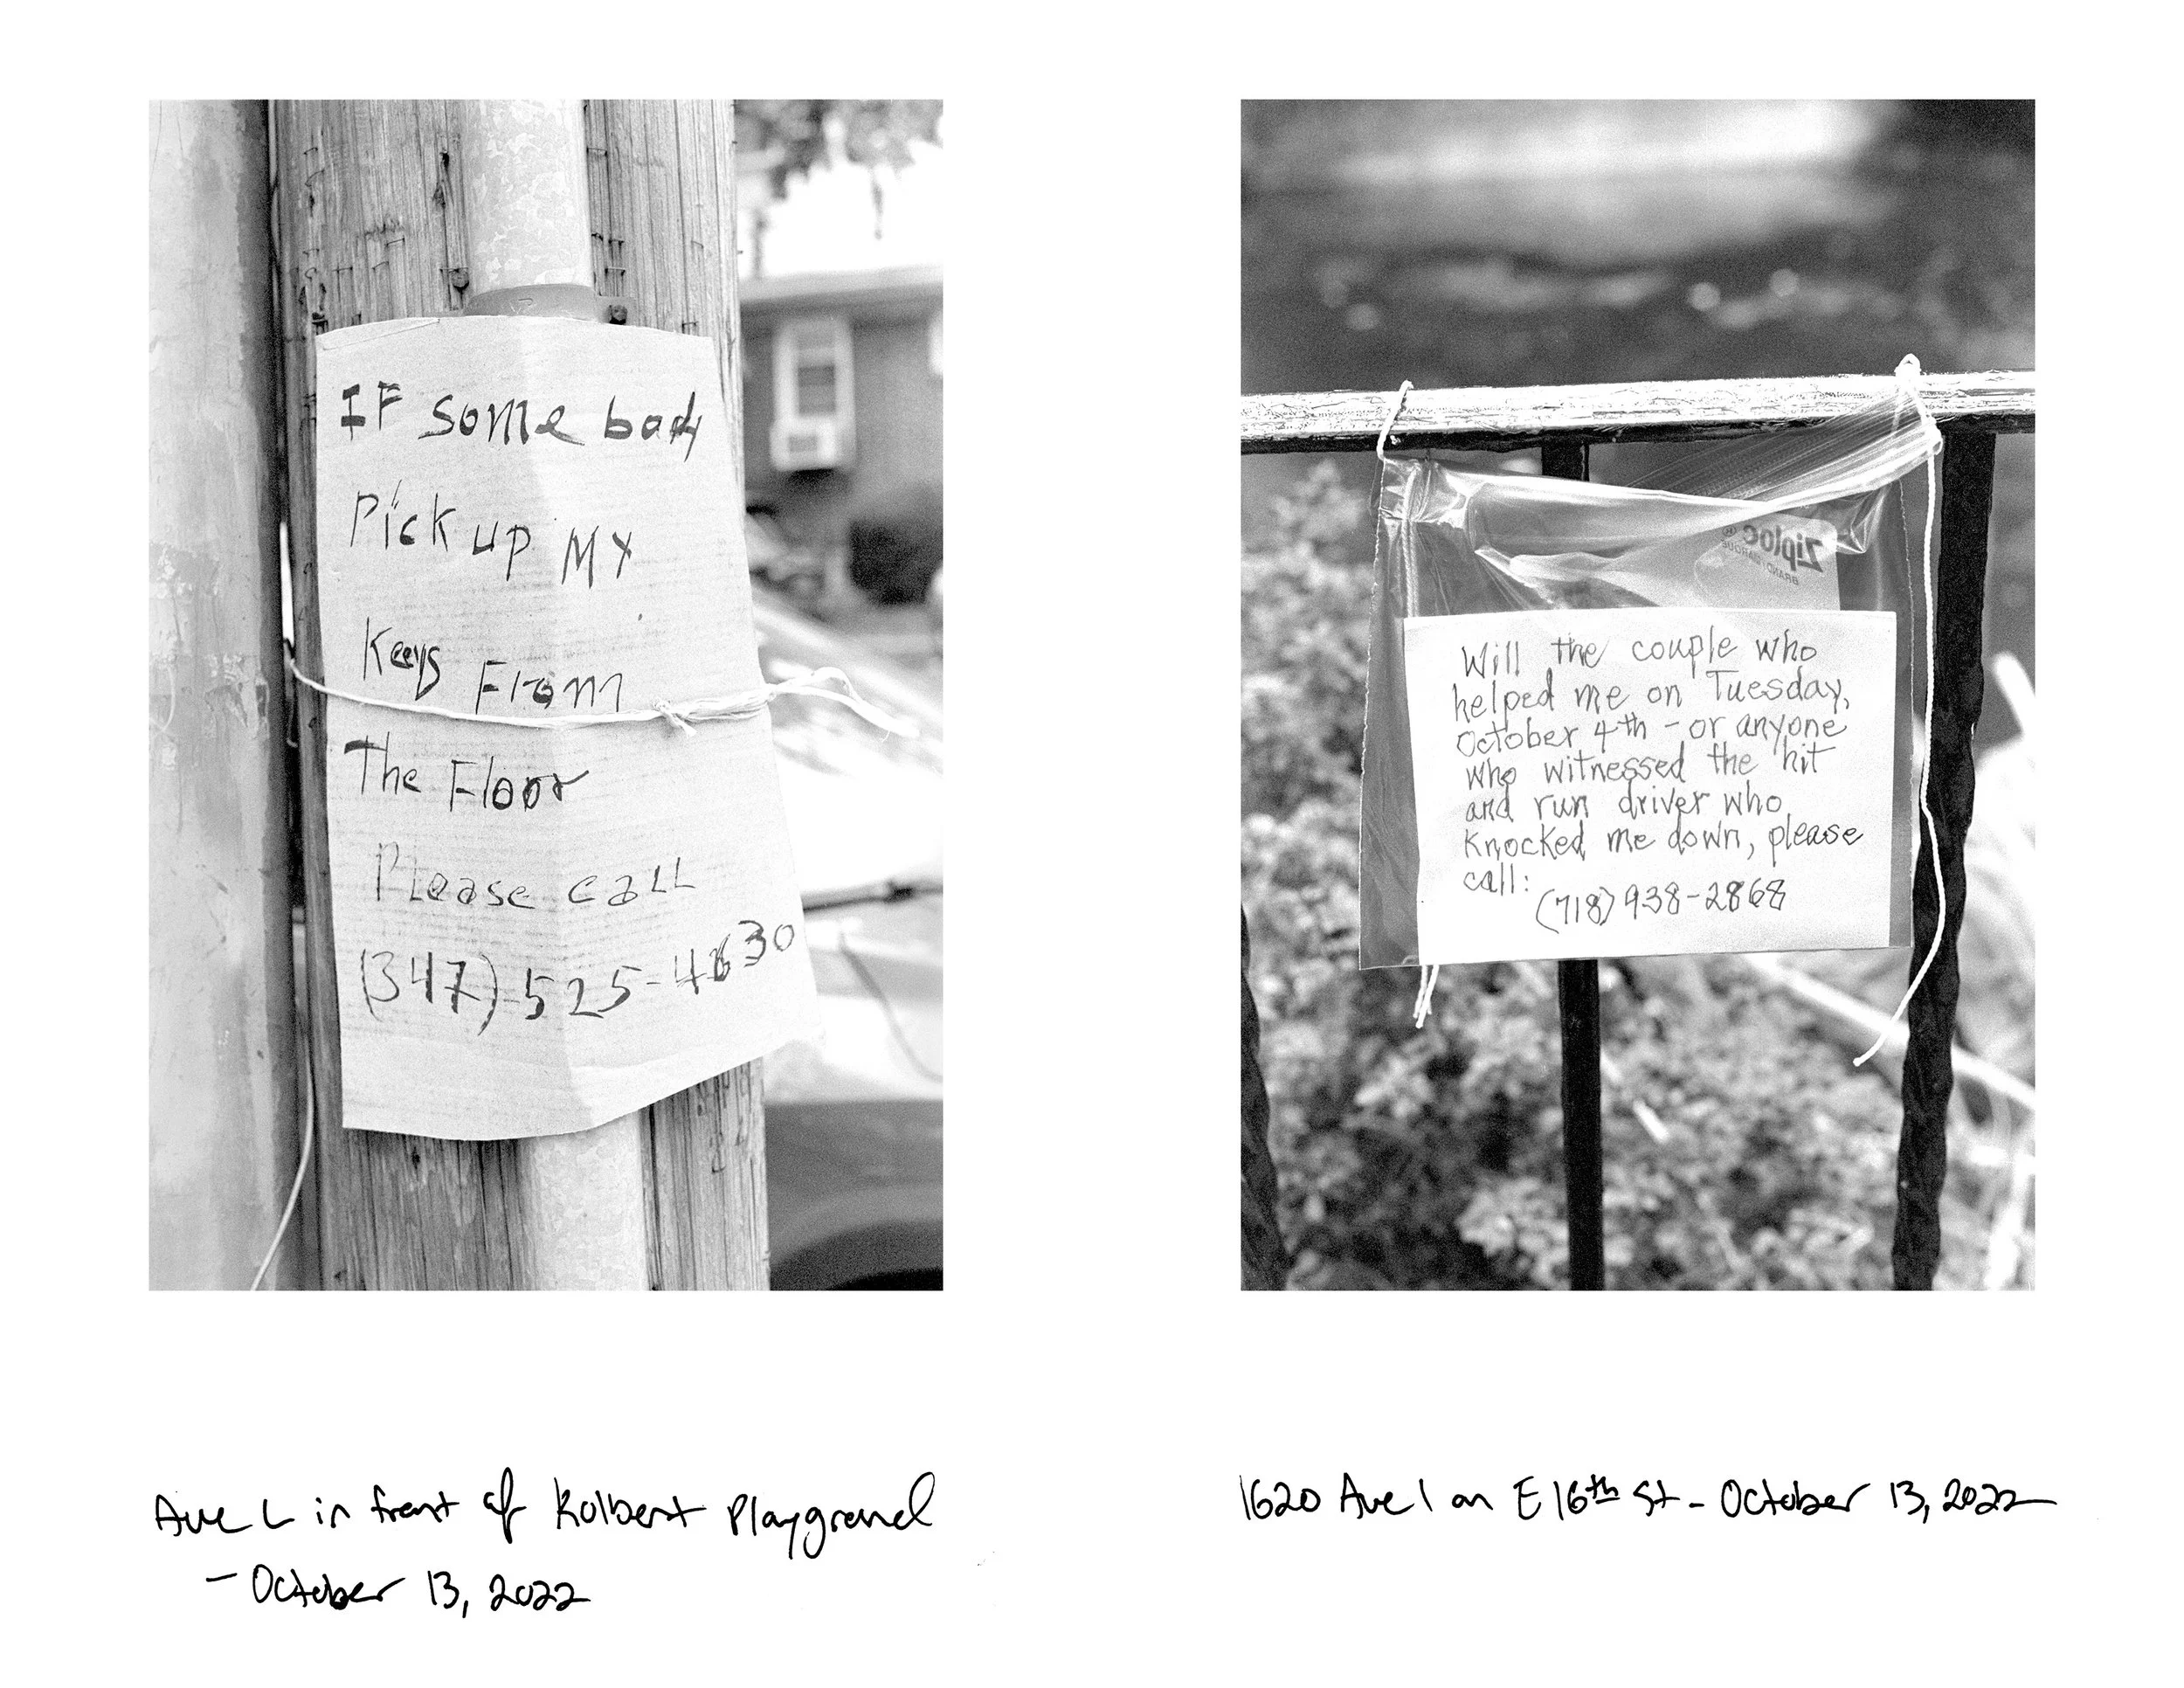 IF some body
Pick up My
Keys From
The Floor
Please call
(347)-525-4830
Ziploc
BRAND
Will the couple who
helped me on Tuesday,
October 4th - or anyone
who witnessed the hit
and run driver who
knocked me down, please
call:
(718) 938-2868
Ave L in front of Kolbert Playground
- October 13, 2022
1620 Ave I on E 16th St - October 13, 2022